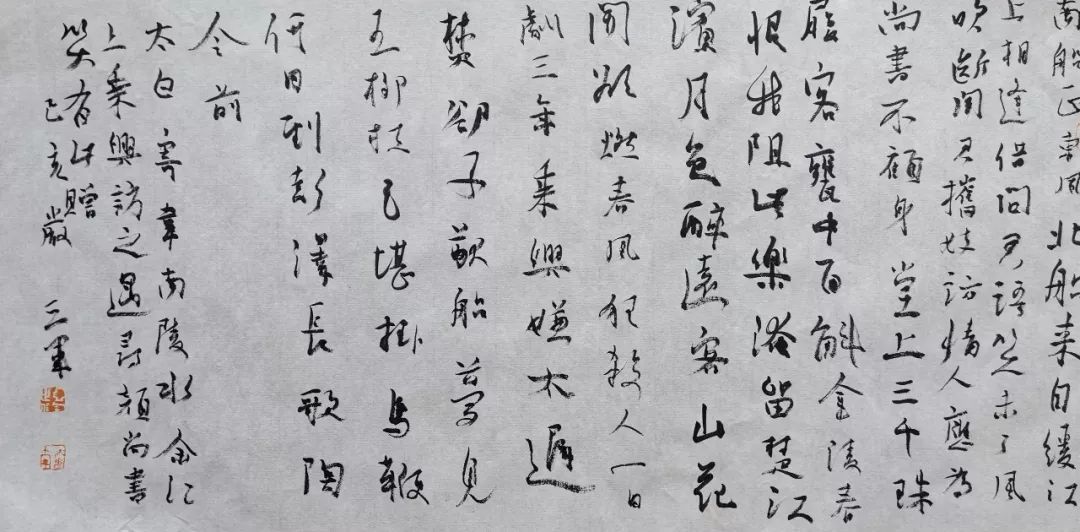 南船正東風北船来自緩江
上相逢借问君語笑未了风
吹断闻君攜妓訪情人應为
尚書不顧身堂上三千珠
履客甕中百斛金陵春
恨我阻此樂淹留楚江
濱月色醉遠客山花
開欲燃春风狂殺人一日
劇三年乘興嫌太遲
焚卻子猷船夢見
五柳枝已堪掛馬鞭
何日到彭澤長歌陶
令前
太白寄韋南陵冰余江
上乘興訪之遇尋顏尚書
笑有此贈
己亥嚴三